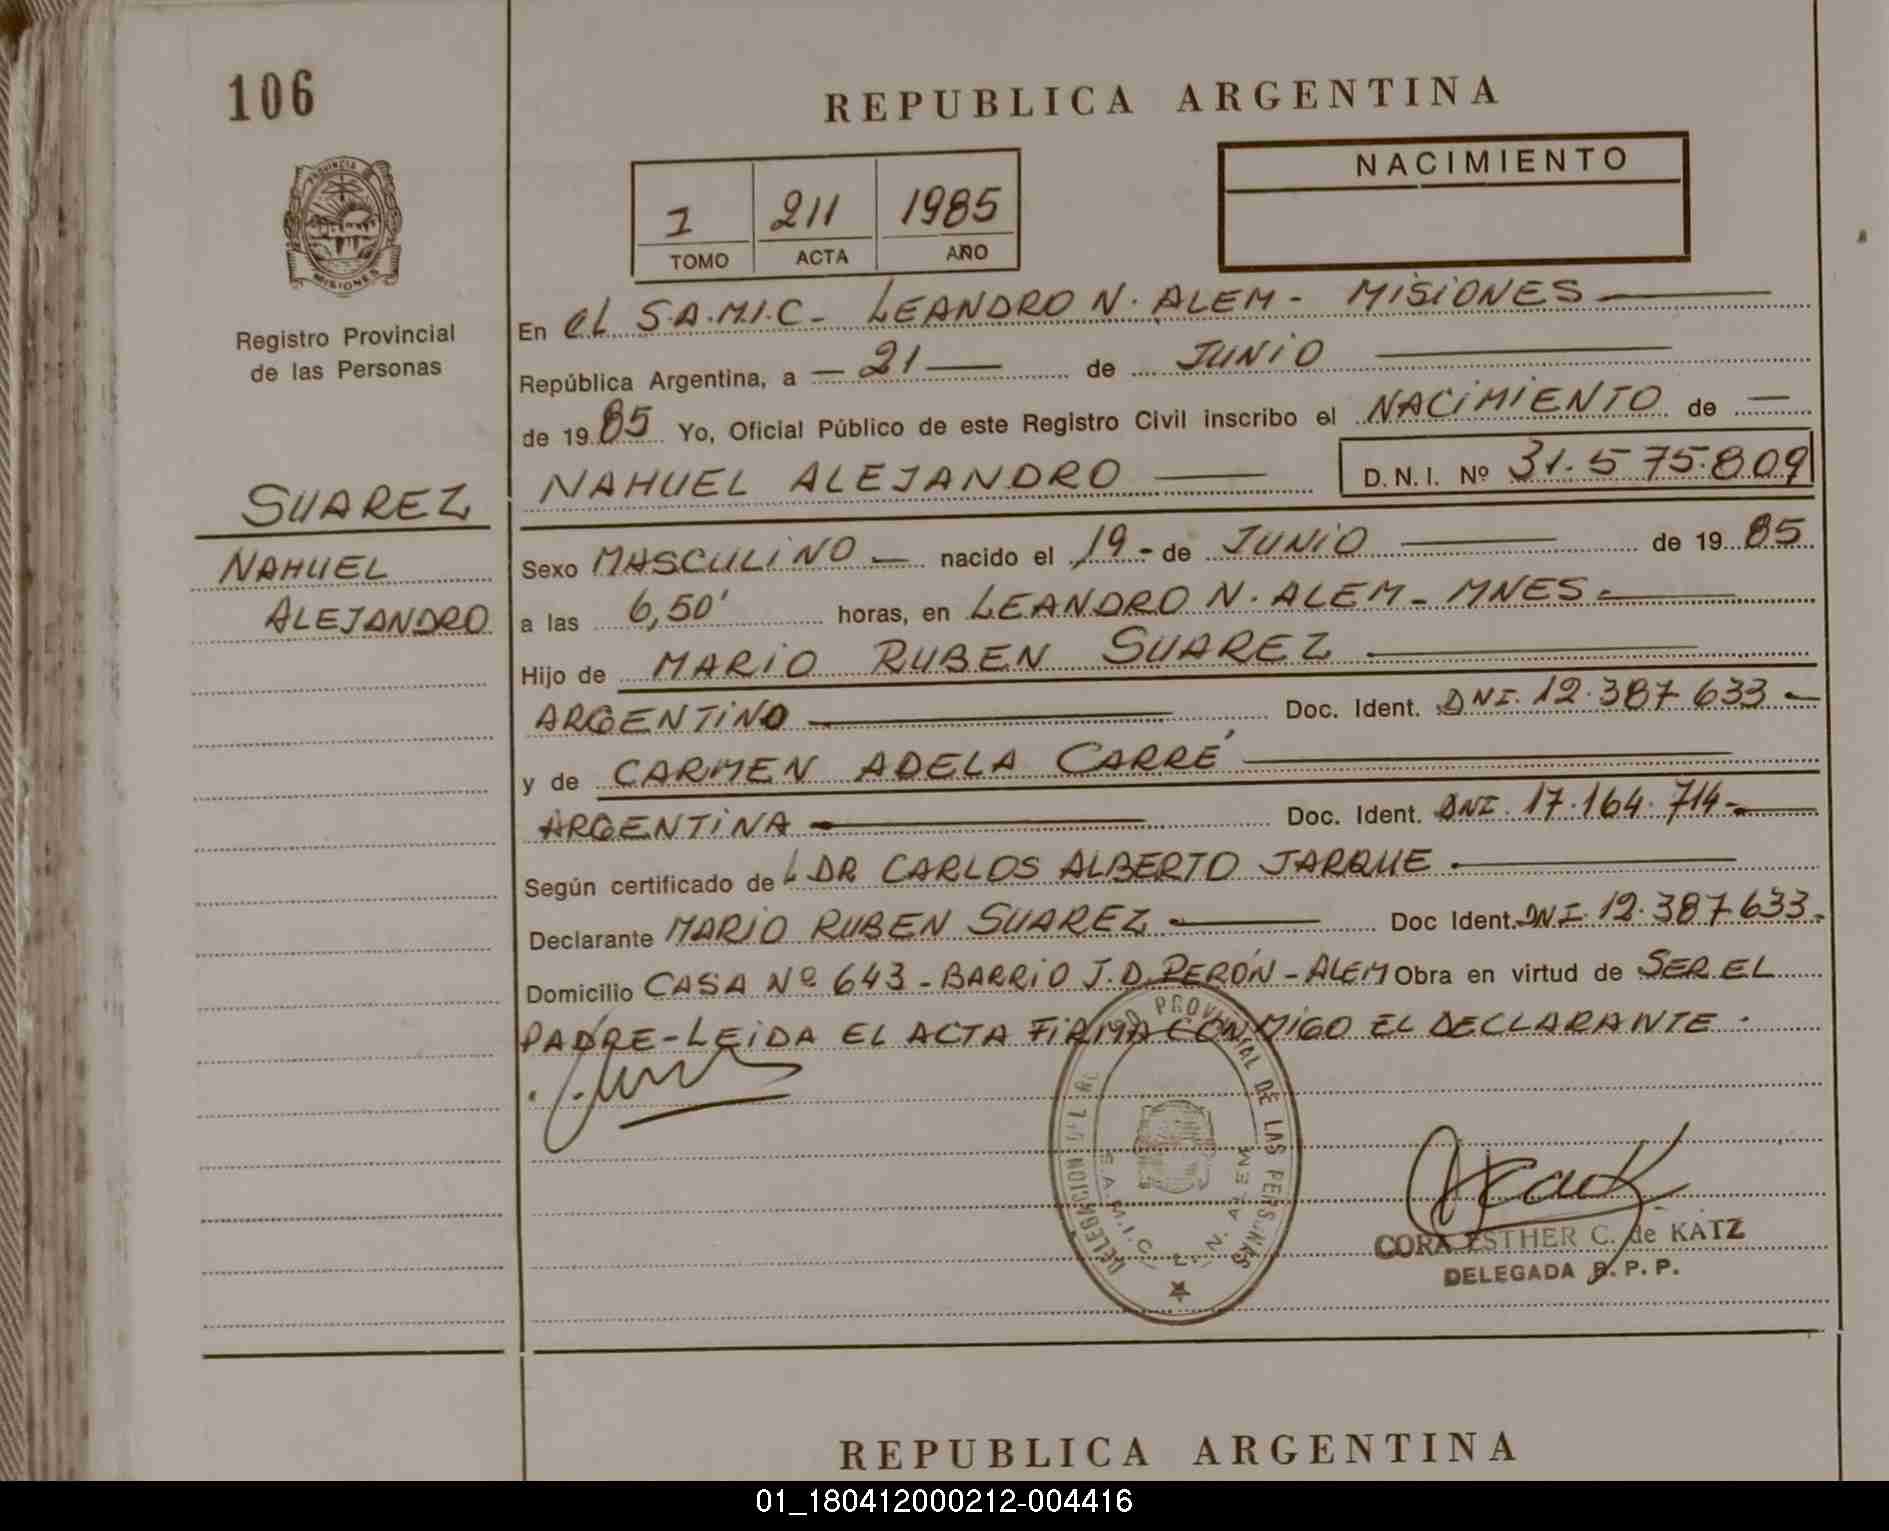 106
REPUBLICA ARGENTINA
PROVINCIA
MISIONES
Registro Provincial
de las Personas
I 211 1985
TOMO ACTA AÑO
NACIMIENTO
En EL S.A.M.I.C - LEANDRO N. ALEM - MISIONES
República Argentina, a — 21 — de JUNIO
de 19 85 Yo, Oficial Público de este Registro Civil inscribo el NACIMIENTO de —
NAHUEL ALEJANDRO D.N.I. Nº 31.575.809
SUAREZ
NAHUEL
ALEJANDRO
Sexo MASCULINO — nacido el 19 - de JUNIO de 19 85
a las 6,50' horas, en LEANDRO N. ALEM - MNES -
Hijo de MARIO RUBEN SUAREZ
ARGENTINO Doc. Ident. DNI. 12.387.633 -
y de CARMEN ADELA CARRÉ
ARGENTINA Doc. Ident. DNI. 17.164.714 -
Según certificado de L DR CARLOS ALBERTO JARQUE
Declarante MARIO RUBEN SUAREZ Doc Ident. DNI. 12.387.633.
Domicilio CASA Nº 643 - BARRIO J.D. PERÓN - ALEM Obra en virtud de SER EL
PADRE - LEIDA EL ACTA FIRMA CONMIGO EL DECLARANTE .
DELEGACION DEL PROVINCIAL DE LAS PERSONAS
S.A.M.I.C. L. N. ALEM
CORA ESTHER C. de KATZ
DELEGADA R. P. P.
REPUBLICA ARGENTINA
01_180412000212-004416